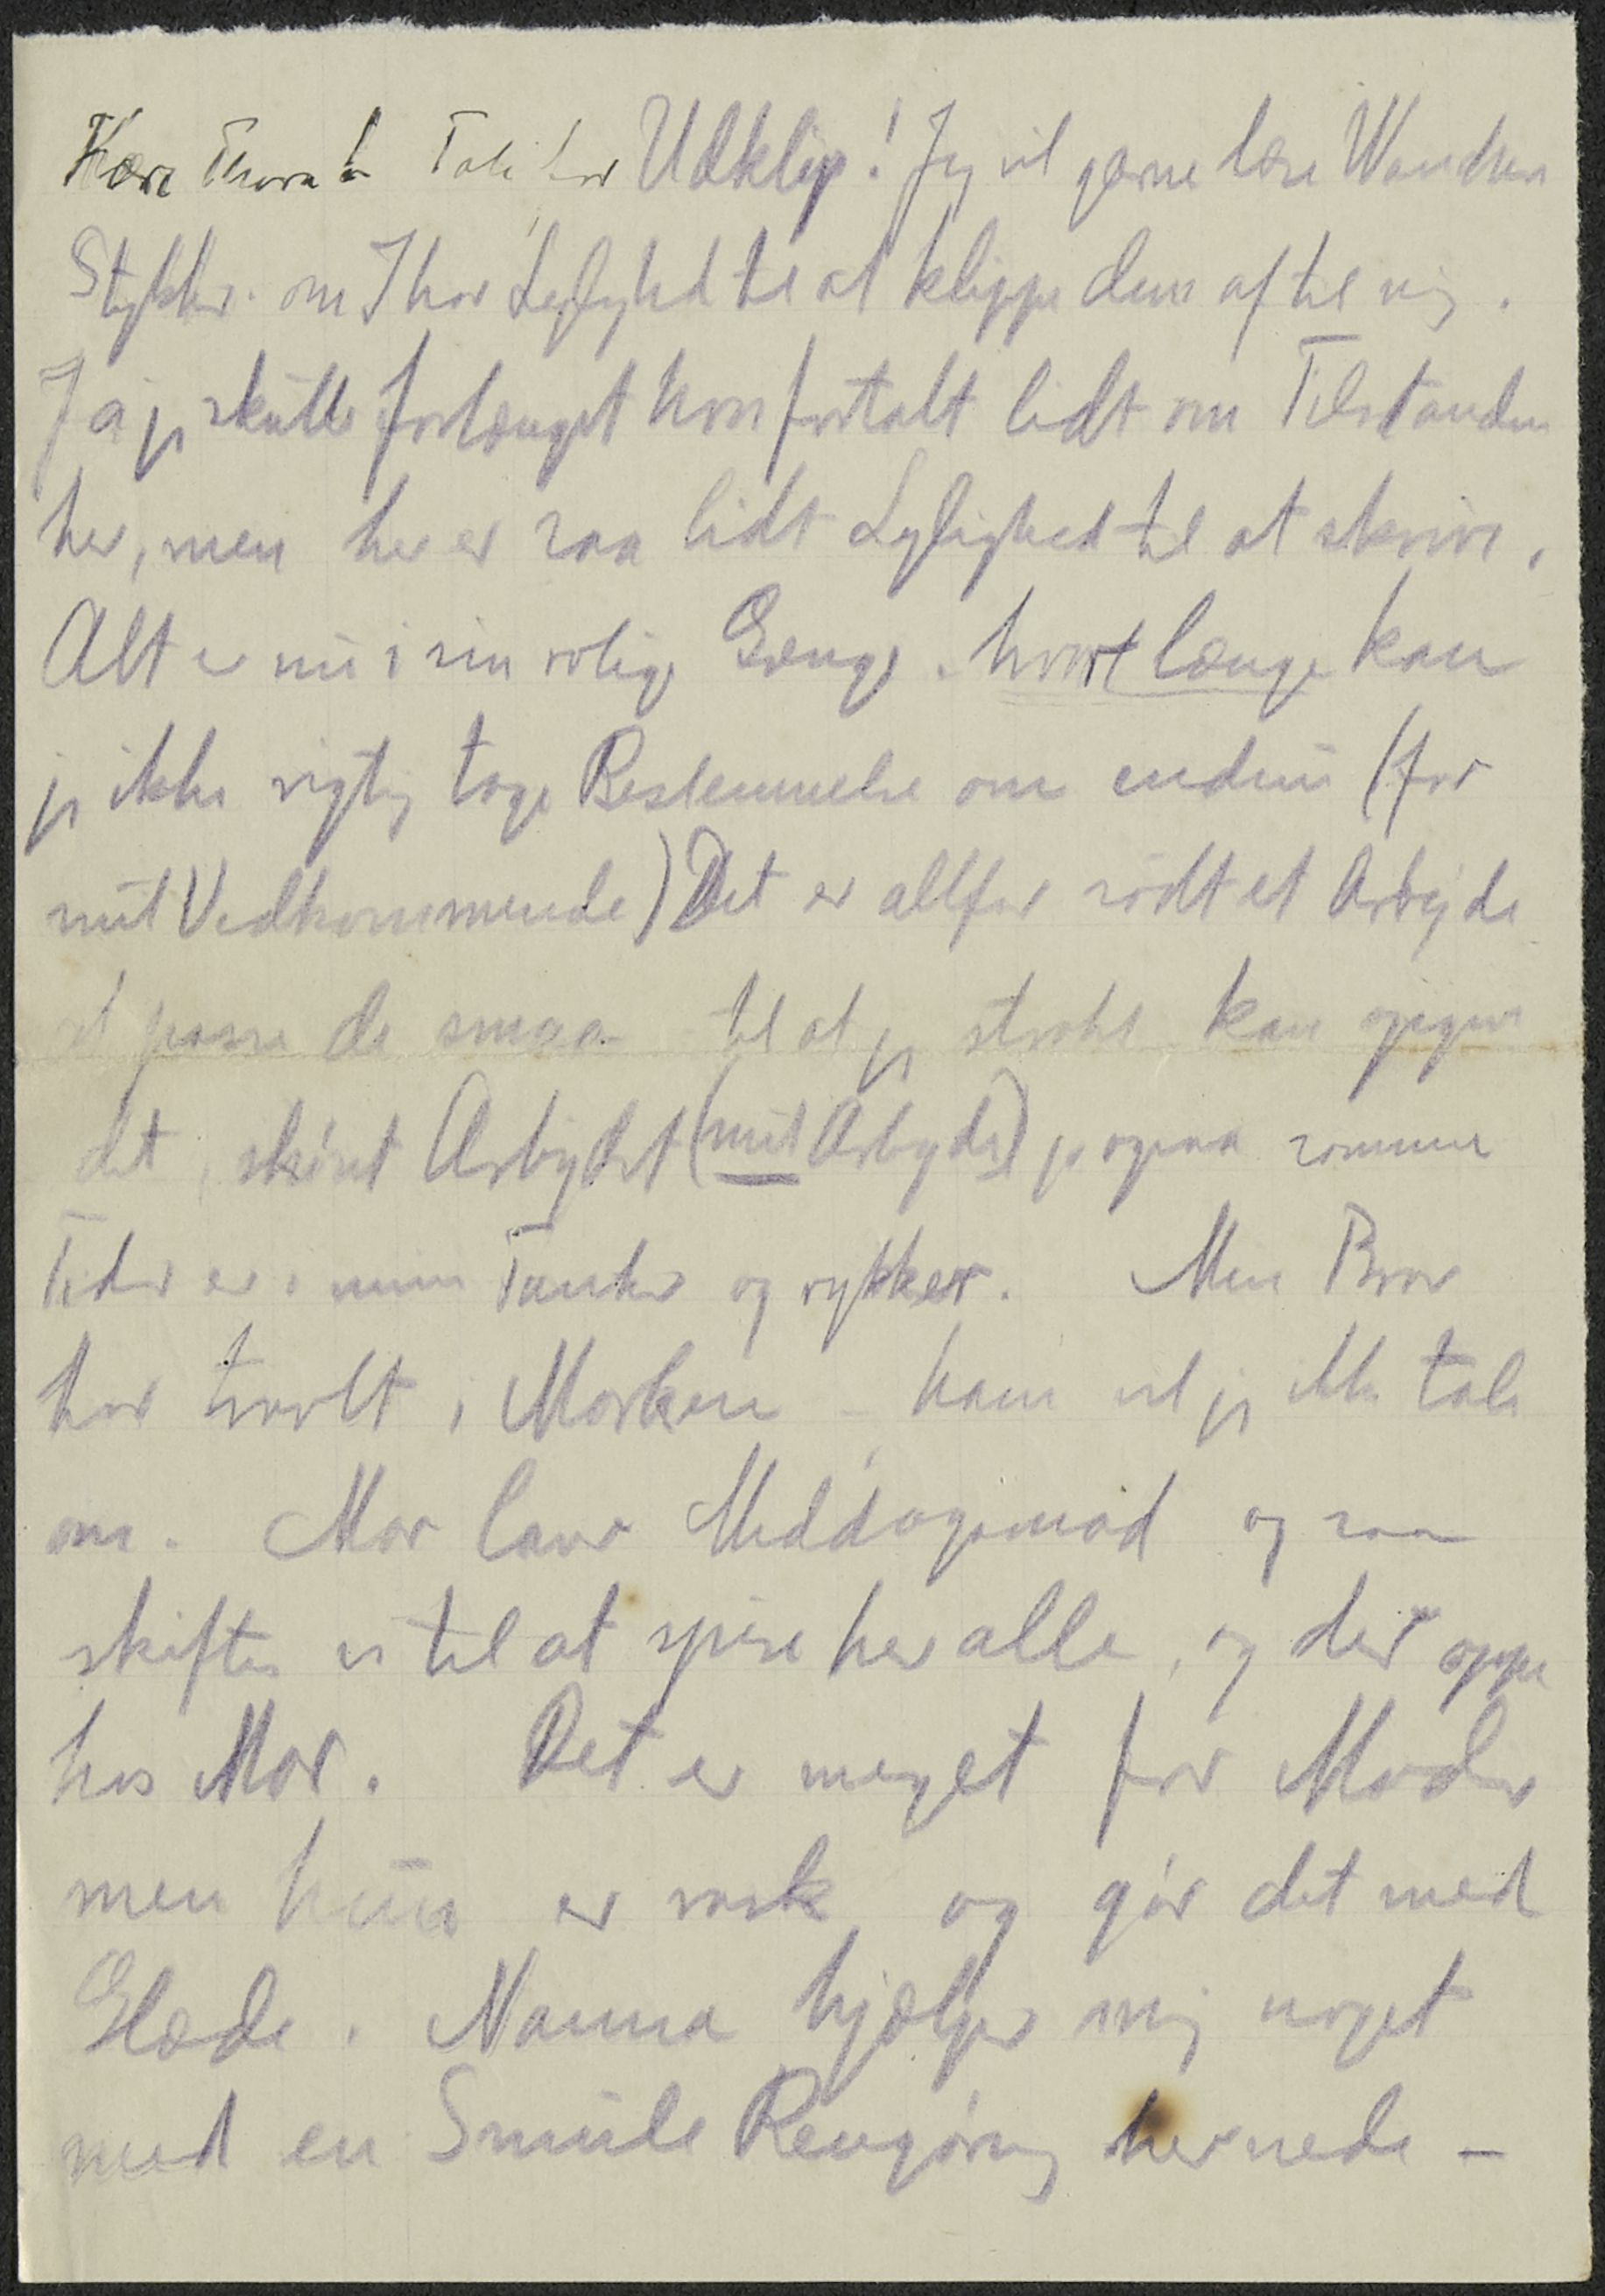 Kære Thora L Tak for Udklip! Jeg vil gerne læse
Stykker. om I har Lejlighed til at klippe dem af til mig.
Ja jeg skulle forlænget have fortalt lidt om Tilstanden
her, men her er saa lidt Lejlighed til at skrive.
Alt er nu i sin rolige Gænge. hvor længe kan
jeg ikke rigtig tage Bestemmelse om endnu (for
mit Vedkommende) Det er altfor sødt et Arbejde
at passe de smaa til at jeg straks kan opgive
det, skönt Arbejdet (mit Arbejde) jo ogsaa somme
Tider er i mine Tanker og rykker. Min Bror
har travlt i Marken – ham vil jeg ikke tale
om. Mor laver Middagsmad og saa
skiftes vi til at spise her alle, og der oppe
hos Mor. Det er meget for Moder
men hun er rask og gör det med
Glæde. Nanna hjælper mig noget
med en Smule Rengöring hernede –